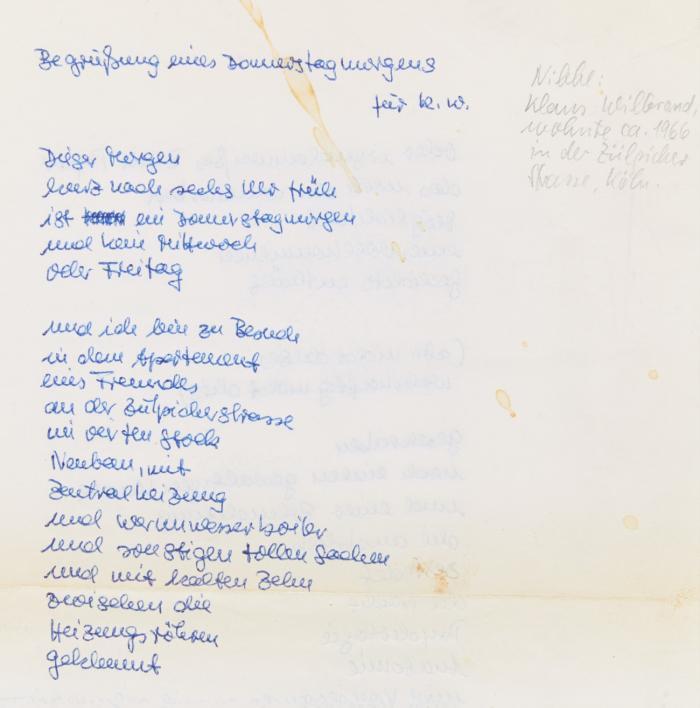 Begrüßung eines Donnerstagmorgens
für K. W.
Dieser Morgen
kurz nach sechs Uhr früh
ist ein Donnerstagmorgen
und kein Mittwoch
oder Freitag
und ich bin zu Besuch
in dem Apartement
eines Freundes
an der Zülpicherstrasse
im vierten Stock
Neubau, mit
Zentralheizung
und Warmwasserboiler
und sonstigen tollen Sachen
und mit kalten Zehn
zwischen die
Heizungsröhren
geklemmt
Klaus Willbrand,
wohnte ca. 1966
in der Zülpicher
Strasse, Köln.